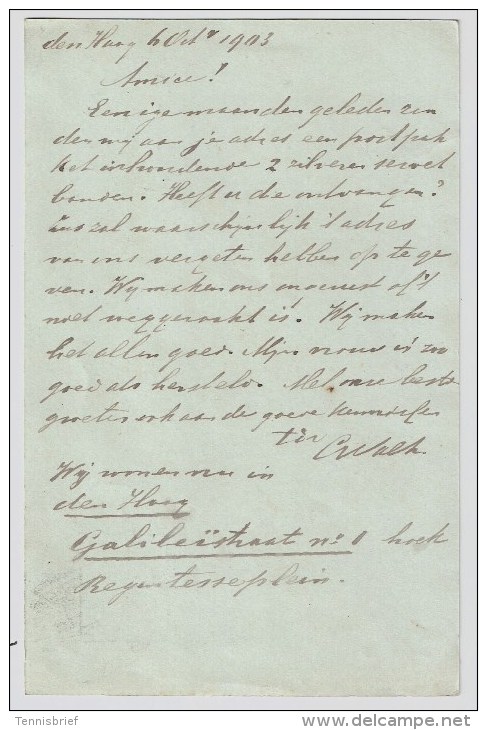 den Haag 6 Octr 1903
Amice!
Eenige maanden geleden zon
den wij aan je adres een postpak
ket inhoudende 2 zilveren servet
banden. Heeft u die ontvangen?
zal waarschijnlijk 't adres
van ons vergeten hebben op te ge
ven. Wij maken ons ongerust of 't
niet weggeraakt is. Wij maken
het allen goed. Mijn vrouw is zoo
goed als hersteld. Met onze beste
groeten ook aan de goede kennissen
t.à.
Wij wonen nu in
den Haag
Galileïstraat no 1 hoek
Regentesseplein.
Tennisbrief
delcampe.net